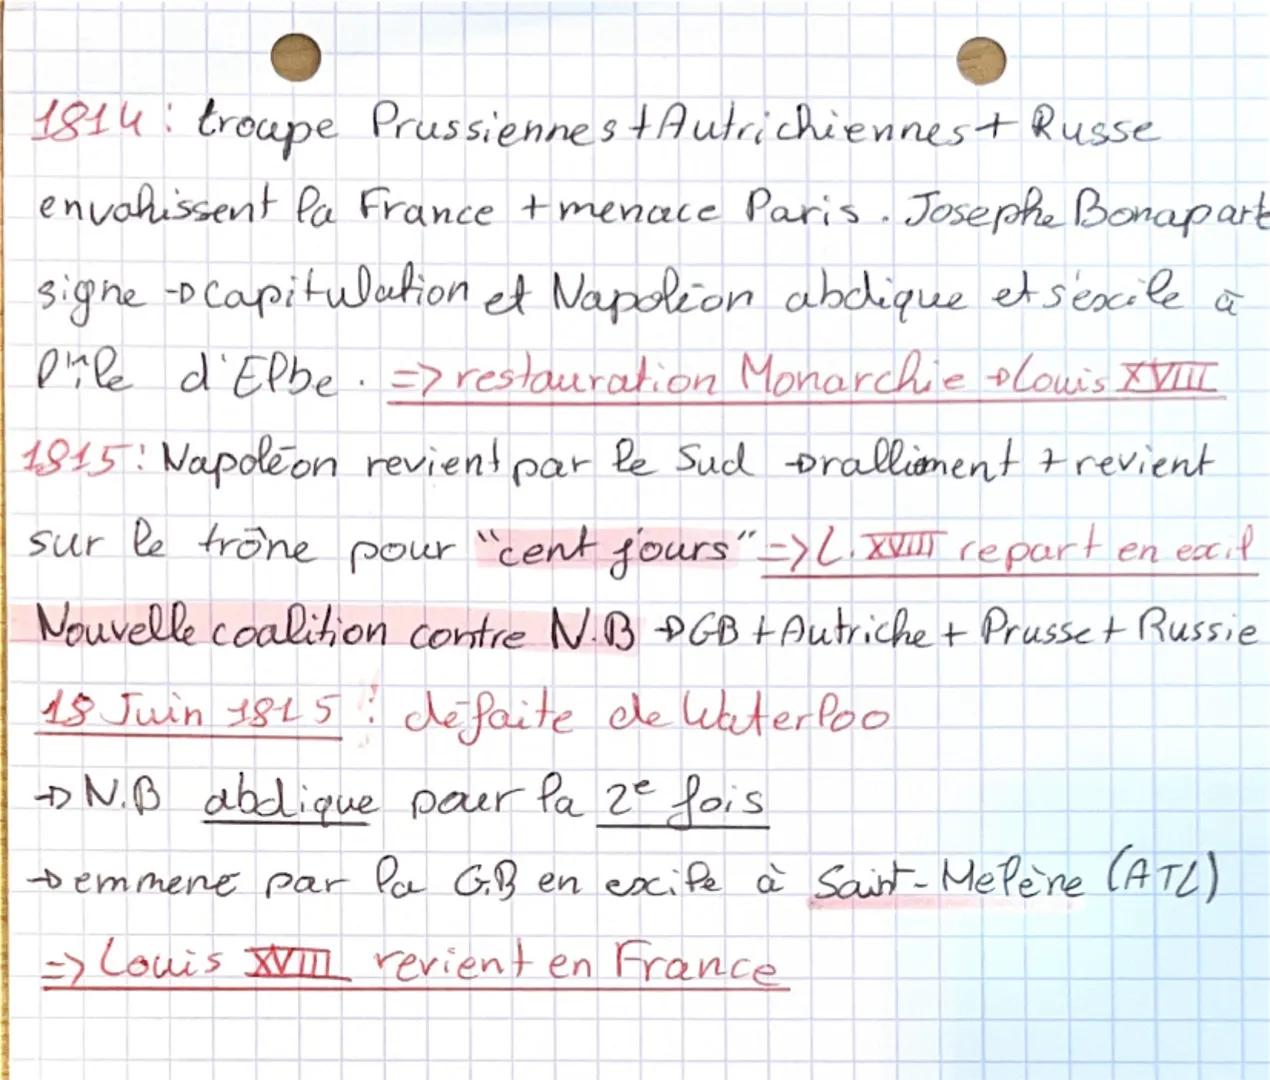 1814 : troupe Prussiennes + Autrichiennes + Russe
envahissent la France + menace Paris. Josephe Bonapart
signe → capitulation et Napoléon abdique et s'éxile à
l'île d'Elbe. => restauration Monarchie → Louis XVIII
1815 : Napoléon revient par le Sud → ralliement + revient
sur le trône pour "cent jours" => L. XVIII repart en exil
Nouvelle coalition contre N.B → GB + Autriche + Prusse + Russie
18 Juin 1815 : défaite de Waterloo
→ N.B abdique pour la 2e fois
→ emmené par la G.B en exile à Saint-Hélène (ATL)
=> Louis XVIII revient en France